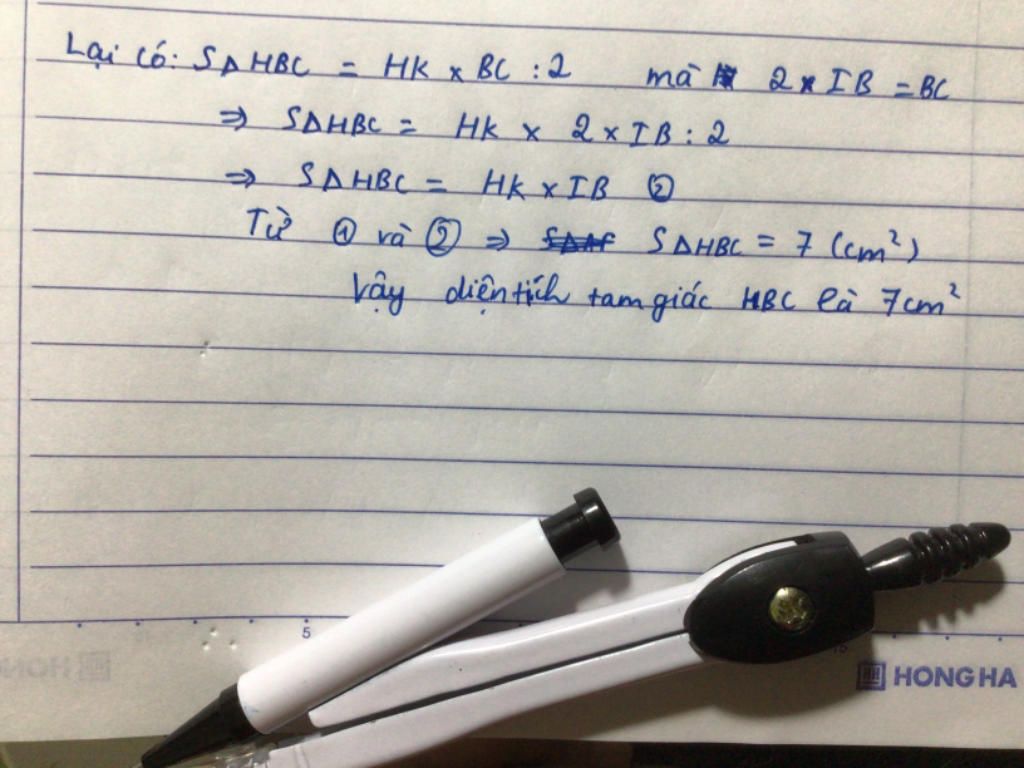 Lại có: SΔHBC = HK x BC : 2 mà 2 x IB = BC
⇒ SΔHBC = HK x 2 x IB : 2
⇒ SΔHBC = HK x IB ②
Từ ① và ② ⇒ SΔHBC = 7 (cm²)
Vậy diện tích tam giác HBC là 7cm²
5
15
HONG HA